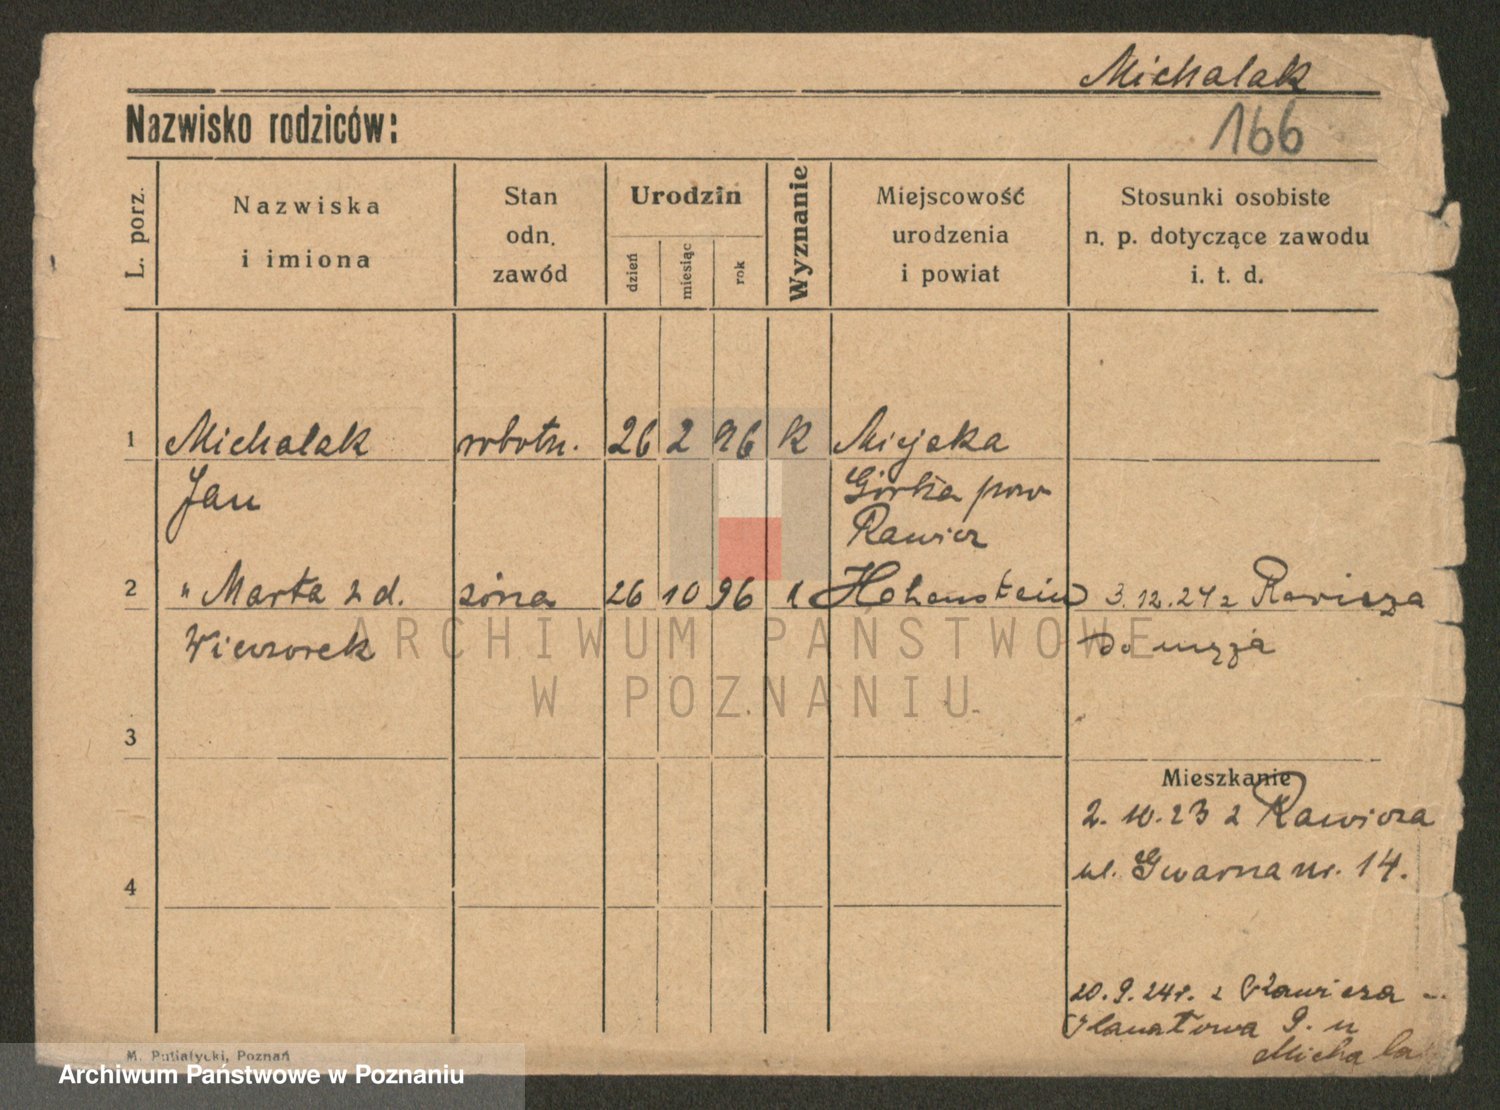 Michalak
166
Nazwisko rodziców:
L. porz.
Nazwiska
i imiona
Stan
odn.
zawód
Urodzin
dzień
miesiąc
rok
Wyznanie
Miejscowość
urodzenia
i powiat
Stosunki osobiste
n. p. dotyczące zawodu
i. t. d.
1 Michalak robotn. 26 2 96 k Miejska
Jan Górka pow
Rawicz
2 " Marta z d. żona 26 10 96 Hohenstein 3.12.24 z Rawicza
Wieczorek do męża
3
Mieszkanie
2. 10. 23 z Rawicza
ul. Gwarna nr. 14.
4
20. 9. 24r. z Rawicza
9. u
Michala
M. Putiatycki, Poznań
ARCHIWUM PAŃSTWOWE
W POZNANIU
Archiwum Państwowe w Poznaniu